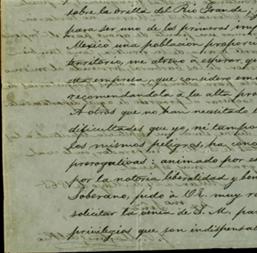 sobre la orilla del Rio Grande,
para ser uno de los primeros
Mexico una poblacion
territorio, me atrevo á esperar que
empresa, que considero
recomendandola á la alta
A otros que no han necesitado
dificultades que yo, ni tampoco
los mismos peligros, ha
prorogativas: animado por
por la notoria liberalidad y
Soberano, pido á V.E. muy
solicitar la venia de S. M. para
privilegios que son